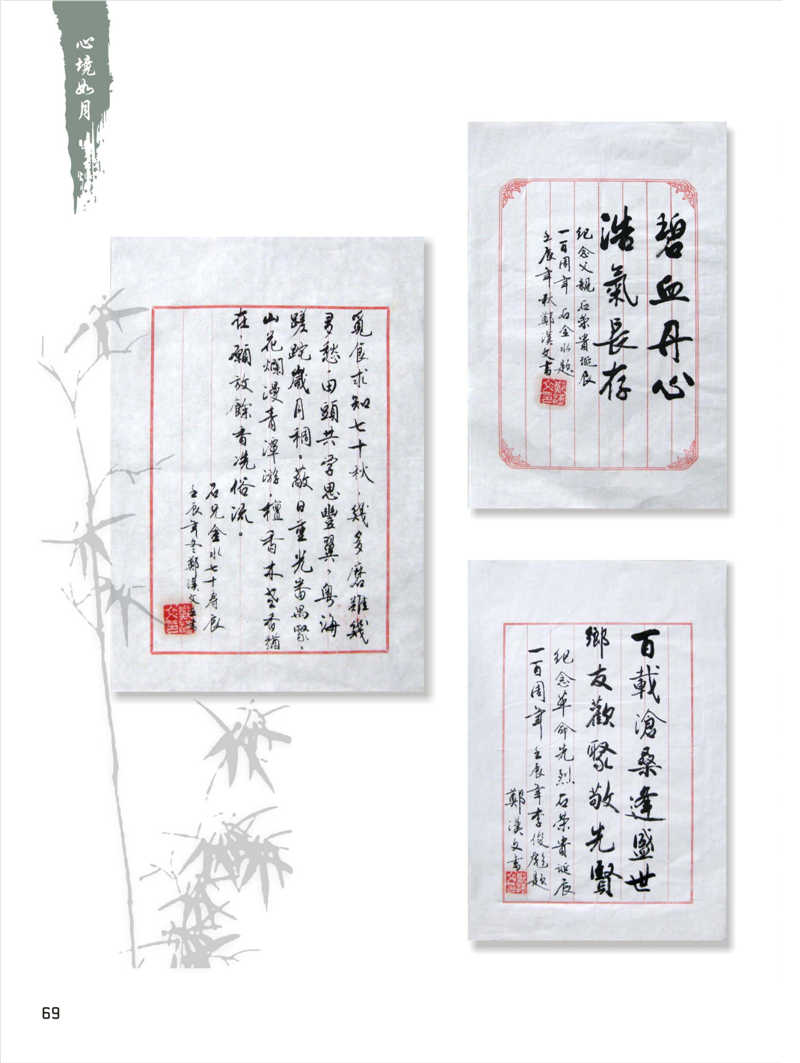 心境如月
碧血丹心
浩氣長存
纪念父親石荣貴诞辰
一百周年 石金水题
壬辰年秋鄭漢文書
覓食求知七十秋，幾多磨難幾
多愁。田頭共学思豐翼，粤海
蹉跎嵗月稠。敲日重光番禺聚，
山花爛漫青潭游。檀香木老香猶
在，願放餘香洗俗流。
石兄金水七十寿辰
壬辰年冬鄭漢文
百載滄桑逢盛世
鄉友歡聚敬先賢
纪念革命先烈石荣貴诞辰
一百周年 壬辰年李俊彪题
鄭漢文書
69